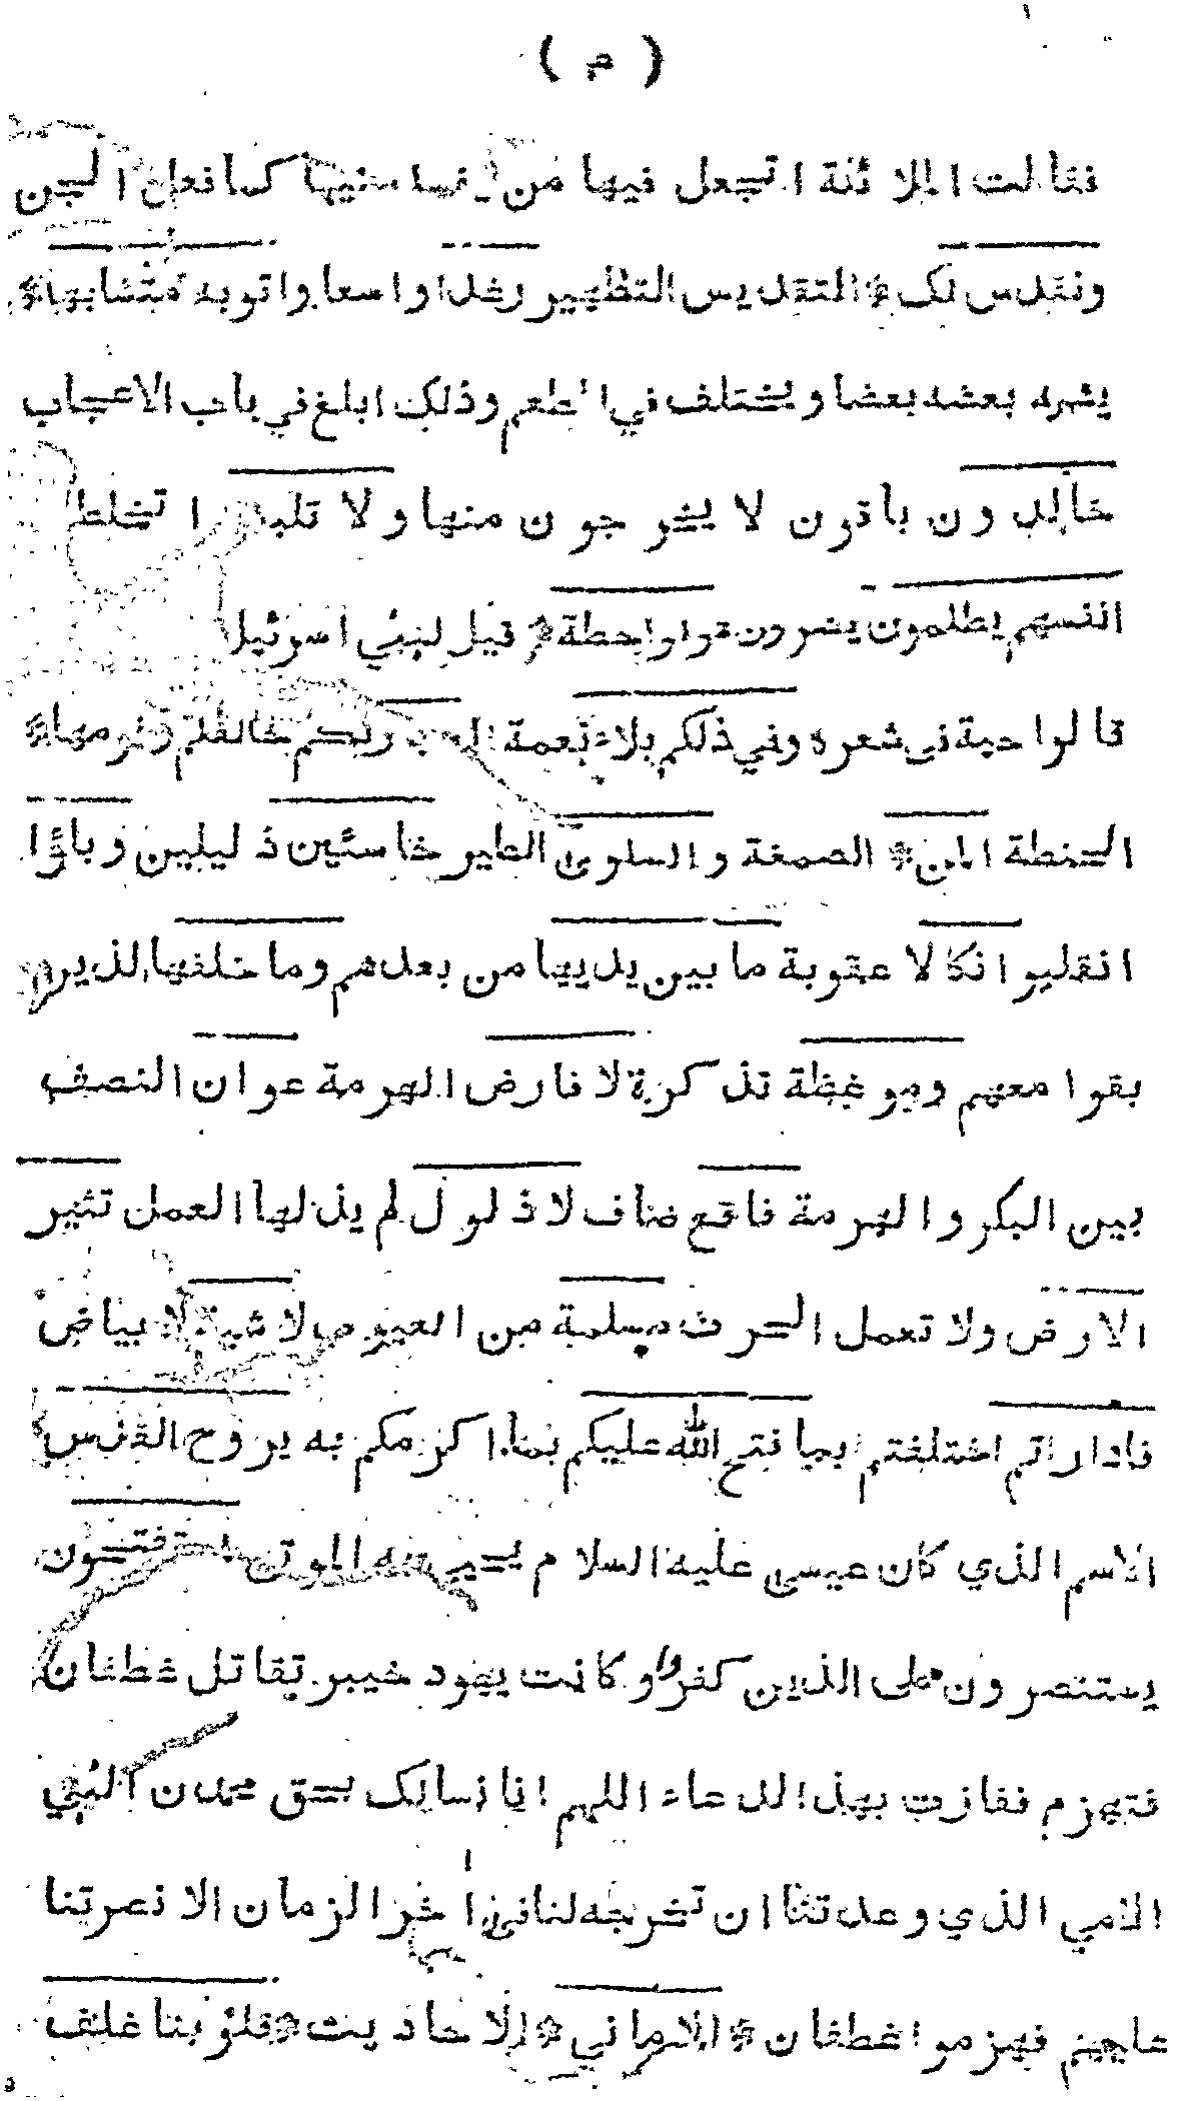 ( م )
فقالت الملا ئكة ا تجعل فيها من يفسد فيها كما فعل ا لجن
ونقدس لك * التقديس التطهير رغدا واسعا واتوبه متشابها *
يشبه بعضه بعضا ويختلف في الطعم وذلك ابلغ في باب الاعجاب
خالد ون باقون لا يخر جون منها ولا تلبسوا تخلطوا
انفسهم يظلمون يضرون قولوا حطة * قيل لبني اسرئيل
قا لوا حبة في شعرة وفي ذلكم بلاء نعمة ربكم خالقكم وفومها *
الحنطة المن * الصمغة والسلوى الطير خاسئين ذ ليلين وباؤا
انقلبوا نكالا عقوبة ما بين يديها من بعدهم وما خلفها الذين
بقوا معهم وموعظة تذ كرة لا فارض الهرمة عوان النصف
بين البكر والهرمة فاقع صاف لا ذ لول لم يذلها العمل تثير
الارض ولا تعمل الحرث مسلمة من العيوب لاشية لا بياض
فاداراتم اختلفتم بما فتح الله عليكم بما اكرمكم به بروح القدس
الاسم الذي كان عيسى عليه السلا م يحيي به الموتى يستفتحون
يستنصرون على الذين كفروا و كانت يهود خيبر تقاتل غطفان
فتهزم فعاذت بهذا الدعاء اللهم انا نسالك بحق محمد ن النبي
الامي الذي وعدتنا ان تخرجه لنا في ا خر الزمان الا نصرتنا
عليهم فهزموا غطفان * الاماني * الا حاديث * قلوبنا غلف